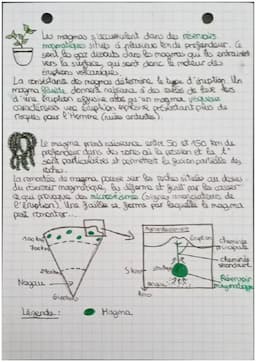 Les magmas s'accumulent dans des réservoirs
magmatiques situés à plusieurs km de profondeur. Ce
sont les gaz dissouts dans les magmas qui les entrainent
vers la surface, qui sont donc le moteur des
éruptions volcaniques.
La consistance des magmas détermine le type d'éruption. Un
magma fluide donnent naissance à des coulées de lave lors
d'une éruption effusive alors qu'un magma visqueux
caractérise une éruption explosive présentant plus de
risques pour l'Homme (nuées ardentes).
Le magma prend naissance entre 50 et 150 km de
profondeur dans des zones où la pression et la t°
sont particulières et permettent la fusion partielle des
roches.
La remontée de magma pousse sur les roches situées au dessus
du réservoir magmatique, les déforme et finit par les casser
ce qui provoque des microséismes (signes annonciateurs de
l'éruption). Une faille se forme par laquelle le magma
peut remonter...
100 km
70 km
Noyau
Agrandissement
Éruption
cheminée
cheminée
5 km
Réservoir
magmatique
Légende :
Magma